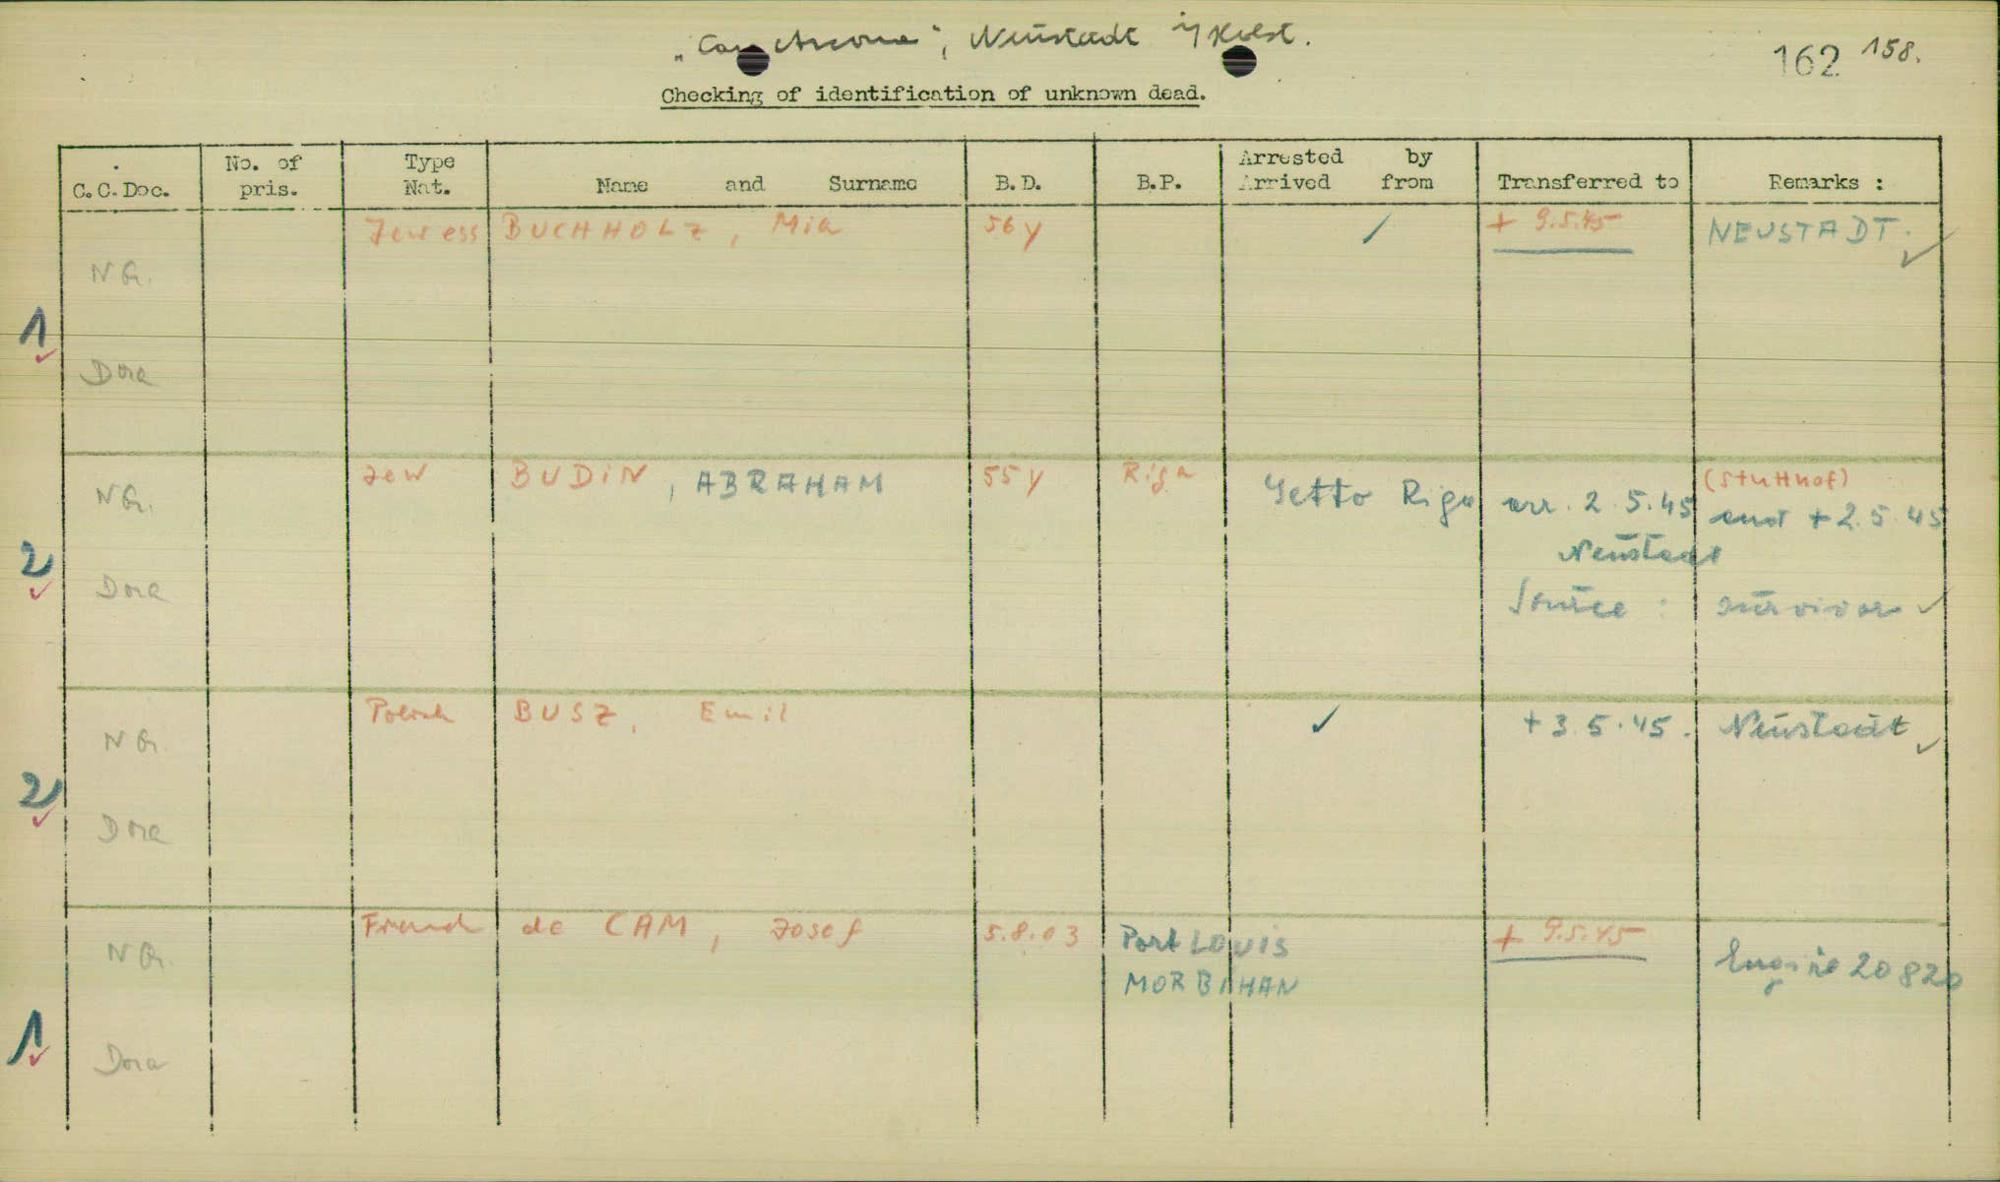 „Cap Arcona", Neustadt i/Holst.
162 158.
Checking of identification of unknown dead.
C.C.Doc. No. of pris. Type Nat. Name and Surname B.D. B.P. Arrested by Arrived from Transferred to Remarks :
Jewess BUCHHOLZ, Mia 56y ✓ + 9.5.45 NEUSTADT. ✓
NG.
1 ✓
Dora
Jew BUDIN, ABRAHAM 55y Riga Getto Riga arr. 2.5.45 (Stutthof)
NG. and + 2.5.45
2 ✓ Neustadt
Dora Source : survivor ✓
Polish BUSZ, Emil ✓ + 3.5.45. Neustadt ✓
NG.
2 ✓
Dora
French de CAM, Josef 5.8.03 Port LOUIS + 9.5.45
NG. MORBIHAN 20820
1 ✓
Dora